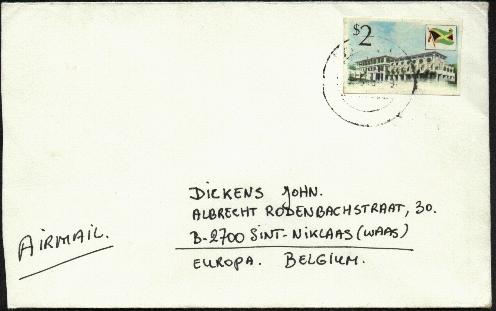 $2
DICKENS JOHN.
ALBRECHT RODENBACHSTRAAT, 30.
B-2700 SINT-NIKLAAS (WAAS)
EUROPA. BELGIUM.
AIRMAIL.